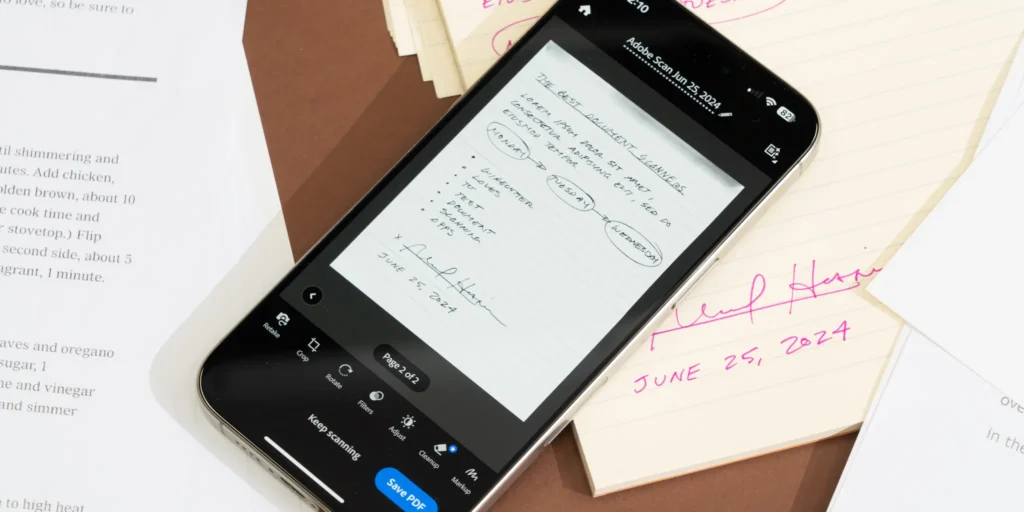 to love, so be sure to
til shimmering and
utes. Add chicken,
olden brown, about 10
e cook time and
r stovetop.) Flip
second side, about 5
agrant, 1 minute.
aves and oregano
sugar, 1
ne and vinegar
and simmer
to high heat
2:10
82
Adobe Scan Jun 25, 2024
THE BEST DOCUMENT SCANNERS
LOREM IPSUM DOLOR SIT AMET,
CONSECTETUR ADIPISCING ELIT, SED DO
EIUSMOD TEMPOR
MONDAY → TUESDAY → WEDNESDAY
• WIRECUTTER
• LOVES
• TO TEST
• DOCUMENT
• SCANNING
• APPS
x
JUNE 25, 2024
Page 2 of 2
Retake
Crop
Rotate
Filters
Adjust
Cleanup
Markup
Keep scanning
Save PDF
JUNE 25, 2024
ove
in the